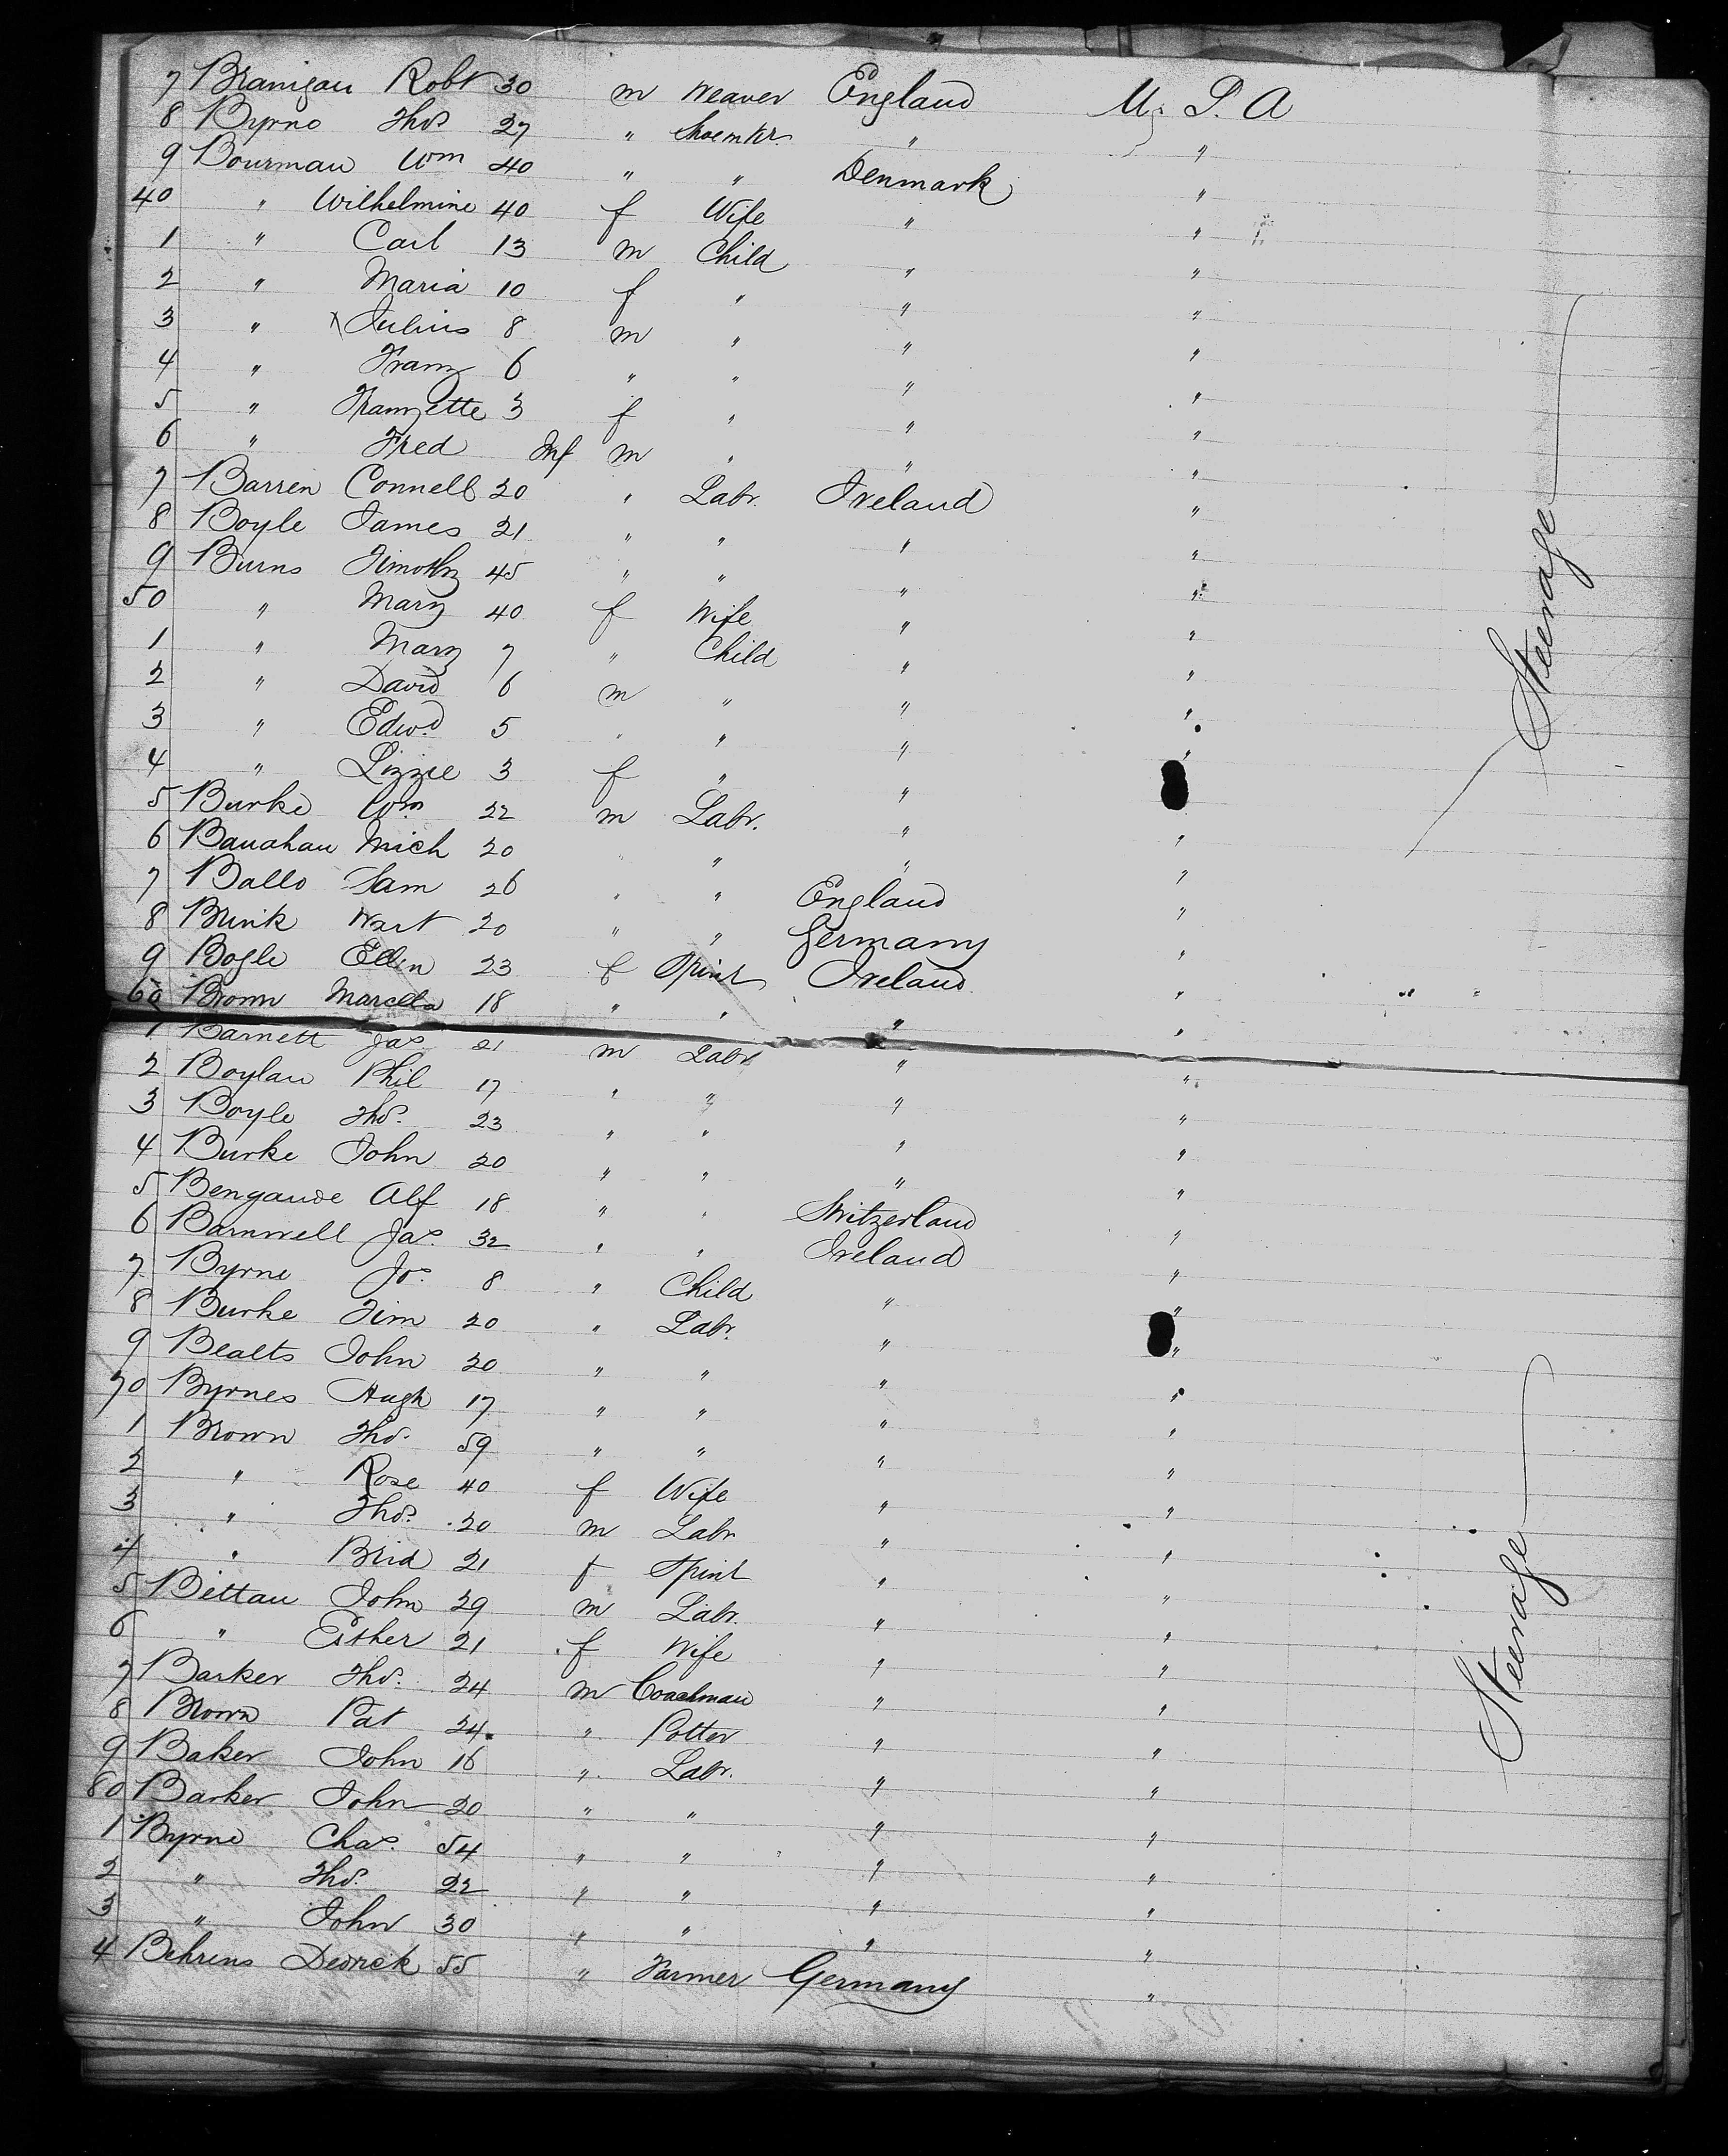 7 Branigan Robt 30 m Weaver England U. S. A
8 Byrne Thos 27 " Shoemkr. " "
9 Bourman Wm 40 " " Denmark "
40 " Wilhelmine 40 f Wife " "
1 " Carl 13 m Child " "
2 " Maria 10 f " " "
3 " x Julius 8 m " " "
4 " Franz 6 " " " "
5 " Franzette 3 f " " "
6 " Fred Inf m " " "
7 Barren Connell 20 " Labr. Ireland "
8 Boyle James 21 " " " "
9 Burns Timothy 45 " " " "
50 " Mary 40 f Wife " "
1 " Mary 7 " Child " "
2 " David 6 m " " "
3 " Edwd 5 " " " "
4 " Lizzie 3 f " " "
5 Burke Wm 22 m Labr. "
6 Banahan Mich 20 " " " "
7 Ballo Sam 26 " " England "
8 Brink Wart 20 " " Germany "
9 Bogle Ellen 23 f Spinst Ireland "
60 Brown Marcella 18 " " " "
1 Barnett Jas 21 m Labr " "
2 Boylan Phil 17 " " " "
3 Boyle Thos. 23 " " " "
4 Burke John 20 " " " "
5 Bengaude Alf 18 " " Switzerland "
6 Barnwell Jas. 32 " " Ireland "
7 Byrne Jos. 8 " Child " "
8 Burke Tim 20 " Labr. " "
9 Bealts John 20 " " " "
70 Byrnes Hugh 17 " " " "
1 Brown Thos. 59 " " " "
2 " Rose 40 f Wife " "
3 " Thos. 20 m Labr " "
4 " Brid 21 f Spinst " "
5 Bittan John 29 m Labr. " "
6 " Esther 21 f Wife " "
7 Barker Thos. 24 m Coachman " "
8 Brown Pat 24 " Potter " "
9 Baker John 16 " Labr. " "
80 Barker John 20 " " " "
1 Byrne Chas. 54 " " " "
2 " Thos. 22 " " " "
3 " John 30 " " " "
4 Behrens Dedrick 55 " Farmer Germany "
Steerage
Steerage